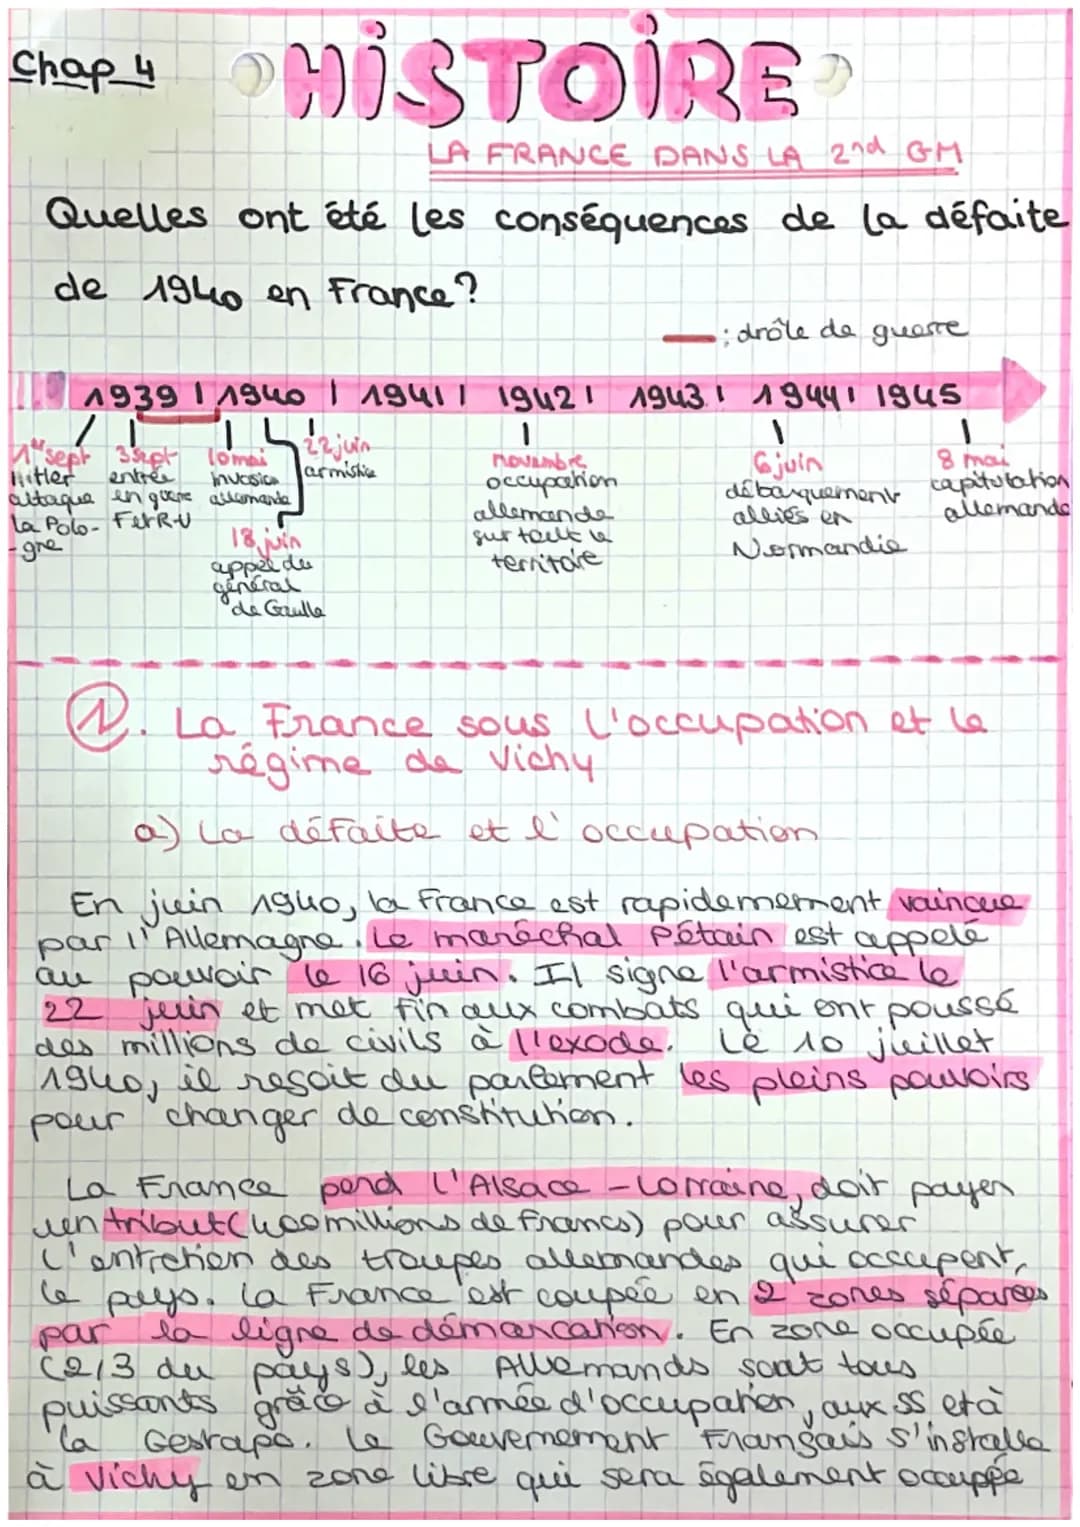 Chap 4
HISTOIRE
LA FRANCE DANS LA 2nd GM
Quelles ont été les conséquences de la défaite
de 1940 en France?
: drôle de guerre
1939 | 1940 | 1941 | 1942 | 1943 | 1944 | 1945
1er sept
Hitler
attaque
la Polo-
-gne
3 sept
entrée
en guerre
F et R-U
10 mai
invasion
allemande
18 juin
appel du
général
de Gaulle
22 juin
armistice
novembre
occupation
allemande
sur tout le
territoire
6 juin
débarquement
alliés en
Normandie
8 mai
capitulation
allemande
1. La France sous l'occupation et le
régime de Vichy
a) La défaite et l'occupation
En juin 1940, la France est rapidemement vaincue
par l'Allemagne. Le maréchal Pétain est appelé
au pouvoir le 16 juin. Il signe l'armistice le
22 juin et met fin aux combats qui ont poussé
des millions de civils à l'exode. Le 10 juillet
1940, il reçoit du parlement les pleins pouvoirs
pour changer de constitution.
La France perd l'Alsace-Lorraine, doit payer
un tribut (400 millions de francs) pour assurer
l'entretien des troupes allemandes qui occupent,
le pays. La France est coupée en 2 zones séparées
par la ligne de démarcation. En zone occupée
(2/3 du pays), les Allemands sont tous
puissants grâce à l'armée d'occupation, aux SS et à
la Gestapo. Le Gouvernement Français s'installe
à Vichy en zone libre qui sera également occuppée